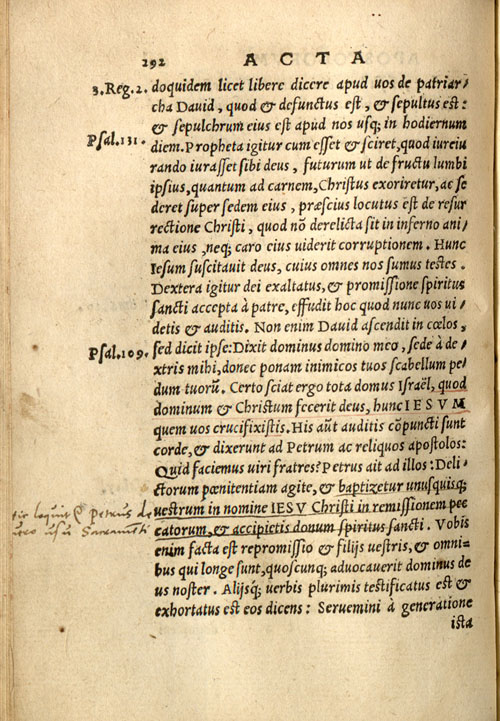 292 ACTA
3.Reg.2. doquidem licet libere dicere apud uos de patriar
cha Dauid, quod & defunctus est, & sepultus est:
& sepulchrum eius est apud nos usq; in hodiernum
Psal.131. diem. Propheta igitur cum esset & sciret, quod iureiu
rando iurasset sibi deus, futurum ut de fructu lumbi
ipsius, quantum ad carnem, Christus exoriretur, ac se
deret super sedem eius, præscius locutus est de resur
rectione Christi, quod nõ derelicta sit in inferno ani
ma eius, neq; caro eius uiderit corruptionem. Hunc
Iesum suscitauit deus, cuius omnes nos sumus testes.
Dextera igitur dei exaltatus, & promissione spiritus
sancti accepta à patre, effudit hoc quod nunc uos ui
detis & auditis. Non enim Dauid ascendit in cœlos,
Psal.109. sed dicit ipse: Dixit dominus domino meo, sede à de
xtris mihi, donec ponam inimicos tuos scabellum pe
dum tuorũ. Certo sciat ergo tota domus Israël, quod
dominum & Christum fecerit deus, hunc IESVM
quem uos crucifixistis. His aũt auditis cõpuncti sunt
corde, & dixerunt ad Petrum ac reliquos apostolos:
Quid faciemus uiri fratres? Petrus ait ad illos: Deli
ctorum pœnitentiam agite, & baptizetur unusquisq;
Petrus de uestrum in nomine IESV Christi in remissionem pec
usu Sacramēti catorum, & accipietis donum spiritus sancti. Vobis
enim facta est repromissio & filijs uestris, & omni-
bus qui longe sunt, quoscunq; aduocauerit dominus de
us noster. Alijsq; uerbis plurimis testificatus est &
exhortatus est eos dicens: Seruemini à generatione
ista